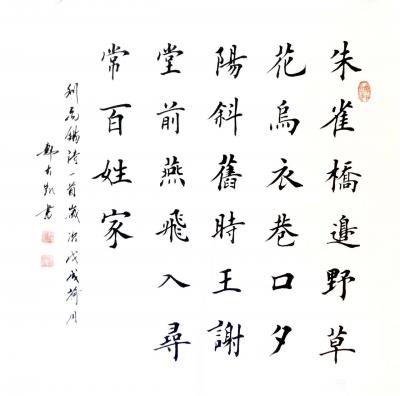 朱雀橋邊野草
花烏衣巷口夕
陽斜舊時王謝
堂前燕飛入尋
常百姓家
劉禹錫詩一首歲次戊戌荷月
鄭大凱書